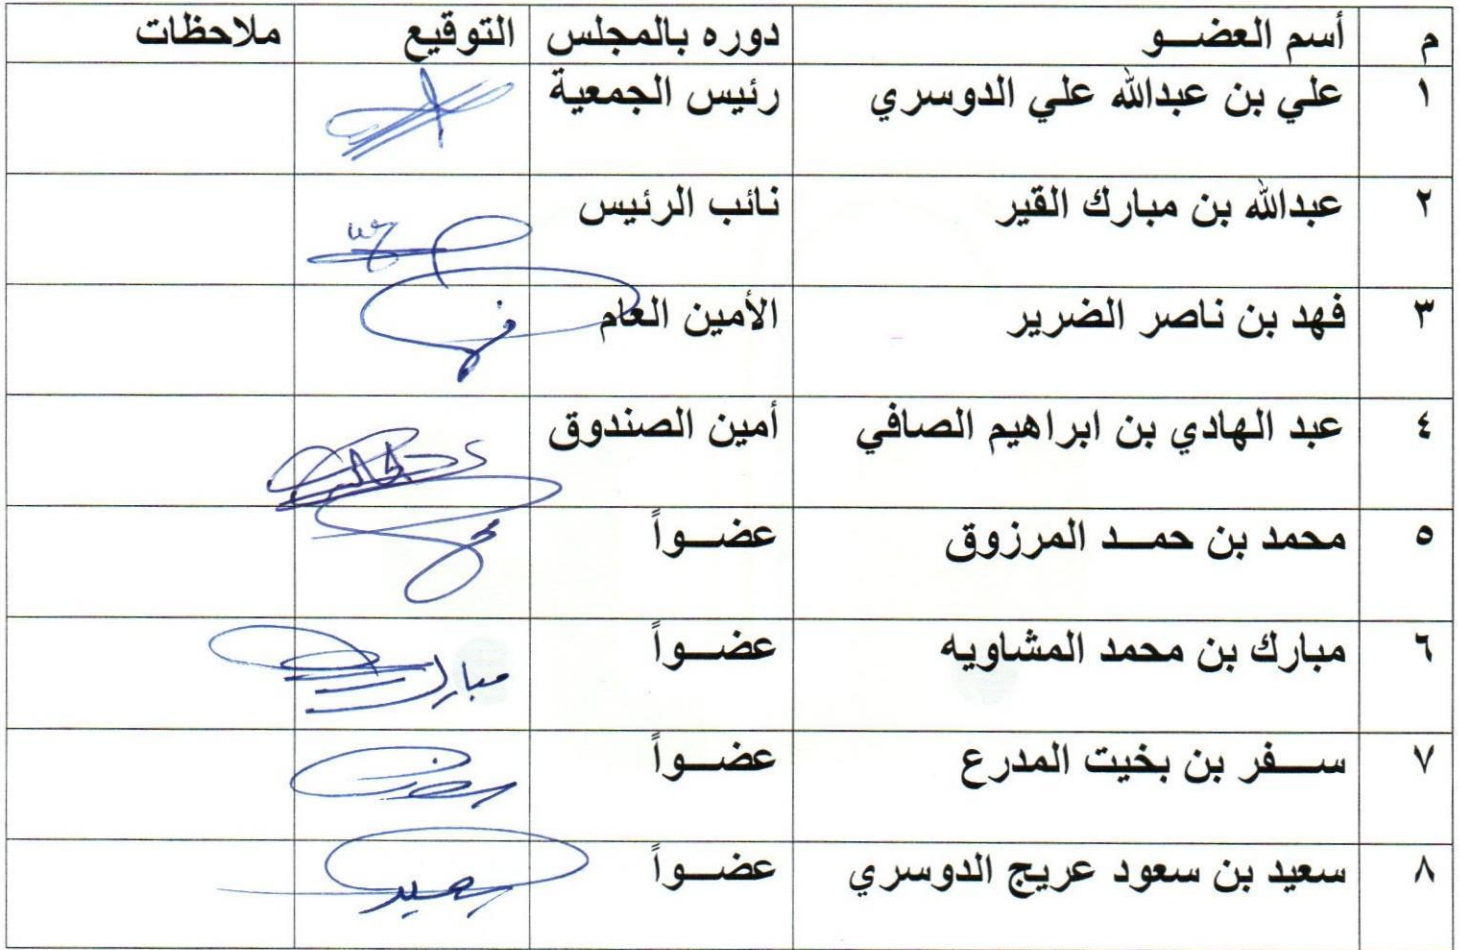 م أسم العضـــو دوره بالمجلس التوقيع ملاحظات
١ علي بن عبدالله علي الدوسري رئيس الجمعية
٢ عبدالله بن مبارك القير نائب الرئيس
٣ فهد بن ناصر الضرير الأمين العام
٤ عبد الهادي بن ابراهيم الصافي أمين الصندوق
٥ محمد بن حمـــد المرزوق عضـــواً
٦ مبارك بن محمد المشاويه عضـــواً مبارك
٧ ســـفر بن بخيت المدرع عضـــواً
٨ سعيد بن سعود عريج الدوسري عضـــواً سعيد